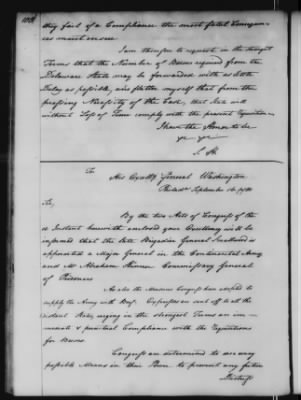 they fail of a Compliance the most fatal Consequen-
ces must ensue.
I am therefore to request in the strongest
Terms that the Number of Beeves required from the
Delaware State may be forwarded with as little
Delay as possible, and flatter myself that from the
pressing Necessity of the Case, that State will
without Loss of Time comply with the present Requisition
I have the Honor to be
S. H.
To
His Excelly General Washington
Philada September 16 1780
Sir,
By the two Acts of Congress of the
15 Instant herewith enclosed your Excellency will be
informed that the late Brigadier General Smallwood is
appointed a Major General in the Continental Army
and Mr Abraham Skinner Commissary General
of Prisoners
As also the Measures Congress has adopted to
supply the Army with Beef. Expresses are sent off to all the
distant States, urging in the strongest Terms an im-
mediate & punctual Compliance with the Requisitions
for Beeves.
Congress are determined to use every
possible Means in their Power to prevent any future
Distress